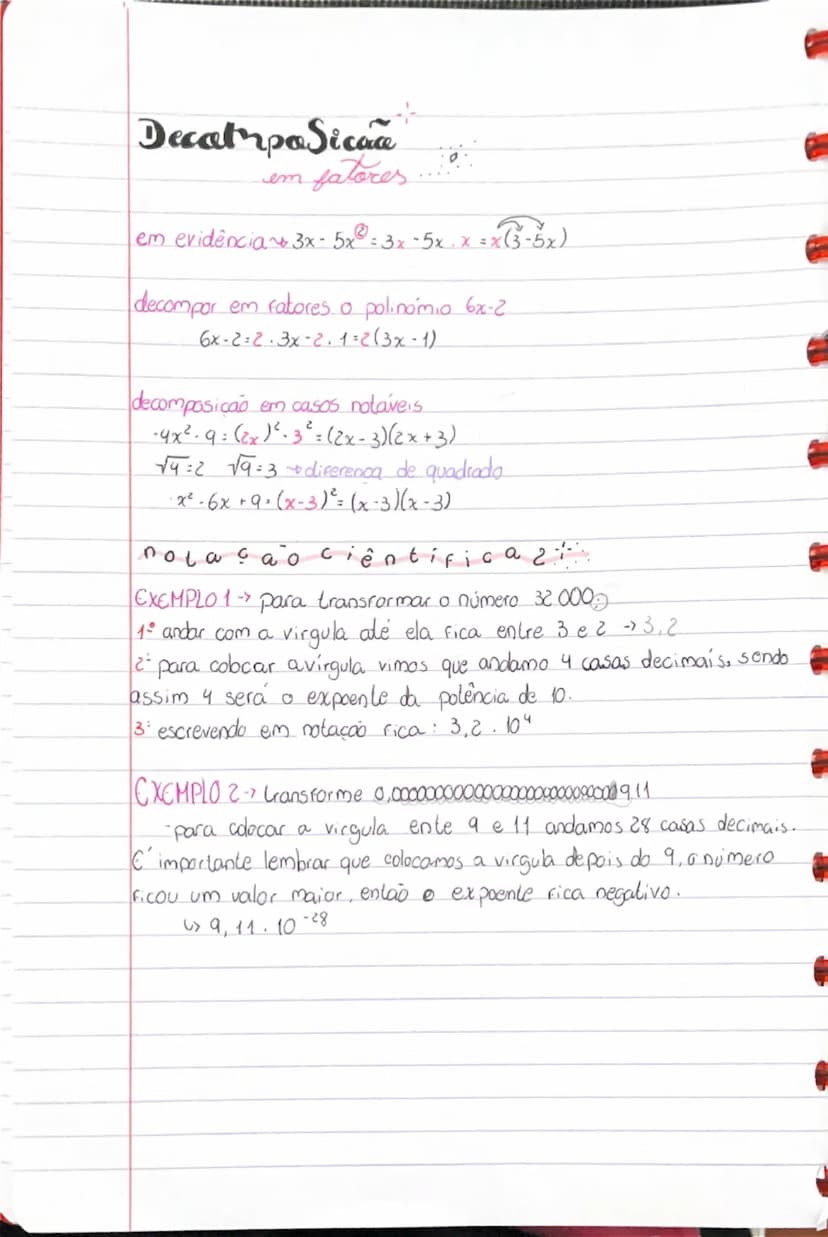 Decomposicão
em fatores
em evidência → 3x - 5x² = 3x - 5x . x = x(3-5x)
decompor em fatores o polinómio 6x-2
6x-2=2.3x-2.1=2(3x-1)
decomposição em casos notáveis
-4x²-9=(2x)²-3²=(2x-3)(2x+3)
√4=2 √9=3 → diferença de quadrado
x²-6x+9=(x-3)²=(x-3)(x-3)
notação ciêntífica 2
EXEMPLO 1 → para transformar o número 32.000,
1º andar com a virgula até ela fica entre 3 e 2 → 3,2
2º para colocar a vírgula vimos que andamo 4 casas decimais, sendo
assim 4 será o expoente da potência de 10.
3º escrevendo em notação fica: 3,2 . 10⁴
EXEMPLO 2 → transforme
-para colocar a virgula ente 9 e 11 andamos 28 casas decimais.
É importante lembrar que colocamos a virgula depois do 9, o número
ficou um valor maior, então o expoente fica negativo.
↳ 9,11 . 10⁻²⁸